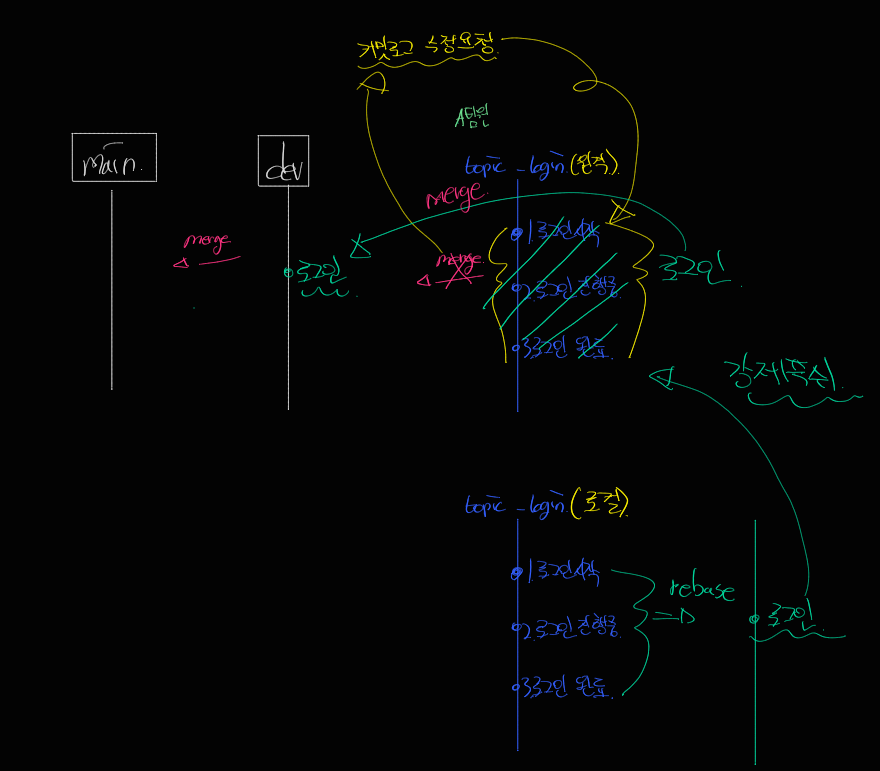 커밋로그 수정요청.
A팀원
main.
dev
topic_login (원격).
merge.
merge
로그인
merge.
1.로그인시작
2.로그인 진행중.
3.로그인 완료
로그인
강제푸쉬.
topic_login (로컬)
1.로그인시작
2.로그인 진행중.
3.로그인 완료.
rebase
로그인